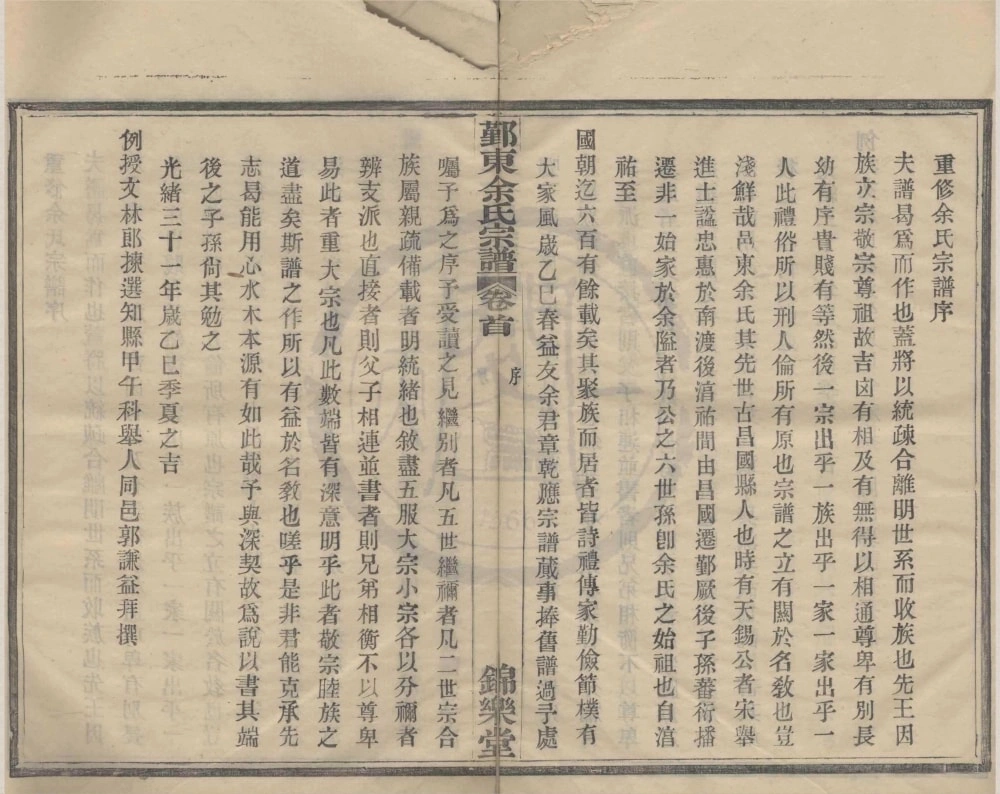 重修余氏宗譜序
夫譜曷爲而作也蓋將以統疎合離明世系而收族也先王因
族立宗敬宗尊祖故吉凶有相及有無得以相通尊卑有別長
幼有序貴賤有等然後一宗出乎一族出乎一家一家出乎一
人此禮俗所以刑人倫所有原也宗譜之立有關於名敎也豈
淺鮮哉邑東余氏其先世古昌國縣人也時有天錫公者宋舉
進士諡忠惠於南渡後淯祐間由昌國遷鄞厥後子孫蕃衍播
遷非一始家於余隘者乃公之六世孫卽余氏之始祖也自淯
祐至
國朝迄六百有餘載矣其聚族而居者皆詩禮傳家勤儉節樸有
大家風歲乙巳春益友余君章乾應宗譜蕆事捧舊譜過予處
鄞東余氏宗譜 卷首 序 錦樂堂
囑予爲之序予受讀之見繼別者凡五世繼禰者凡二世宗合
族屬親疏備載者明統緒也敘盡五服大宗小宗各以分禰者
辨支派也直接者則父子相連並書者則兄弟相衡不以尊卑
易此者重大宗也凡此數端皆有深意明乎此者敬宗睦族之
道盡矣斯譜之作所以有益於名敎也嗟乎是非君能克承先
志曷能用心水木本源有如此哉予與深契故爲說以書其端
後之子孫尙其勉之
光緒三十一年歲乙巳季夏之吉
例授文林郎揀選知縣甲午科舉人同邑郭謙益拜撰